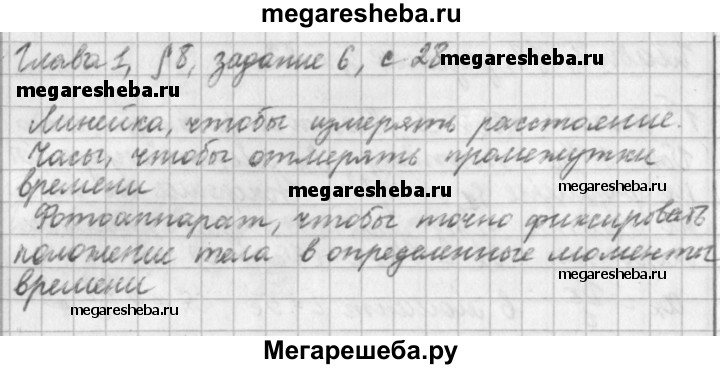 megaresheba.ru
Глава 1, § 8, задание 6, с 28
megaresheba.ru
megaresheba.ru
Линейка, чтобы измерять расстояние.
Часы, чтобы отмерять промежутки
времени
megaresheba.ru
megaresheba.ru
Фотоаппарат, чтобы точно фиксировать
положение тела в определенные моменты
времени
megaresheba.ru
megaresheba.ru
Мегарешеба.ру